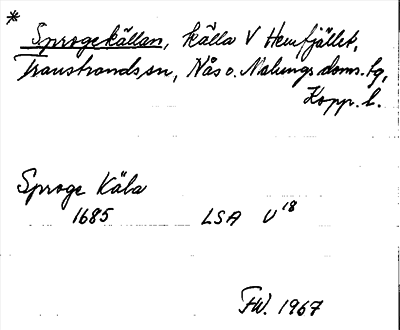 *
Sprogekällan, källa V Hemfjället,
Transtrands sn, Nås o. Malungs doms. tg,
Kopp. l.
Sproge Käla
1685 LSA U 18
FW. 1967